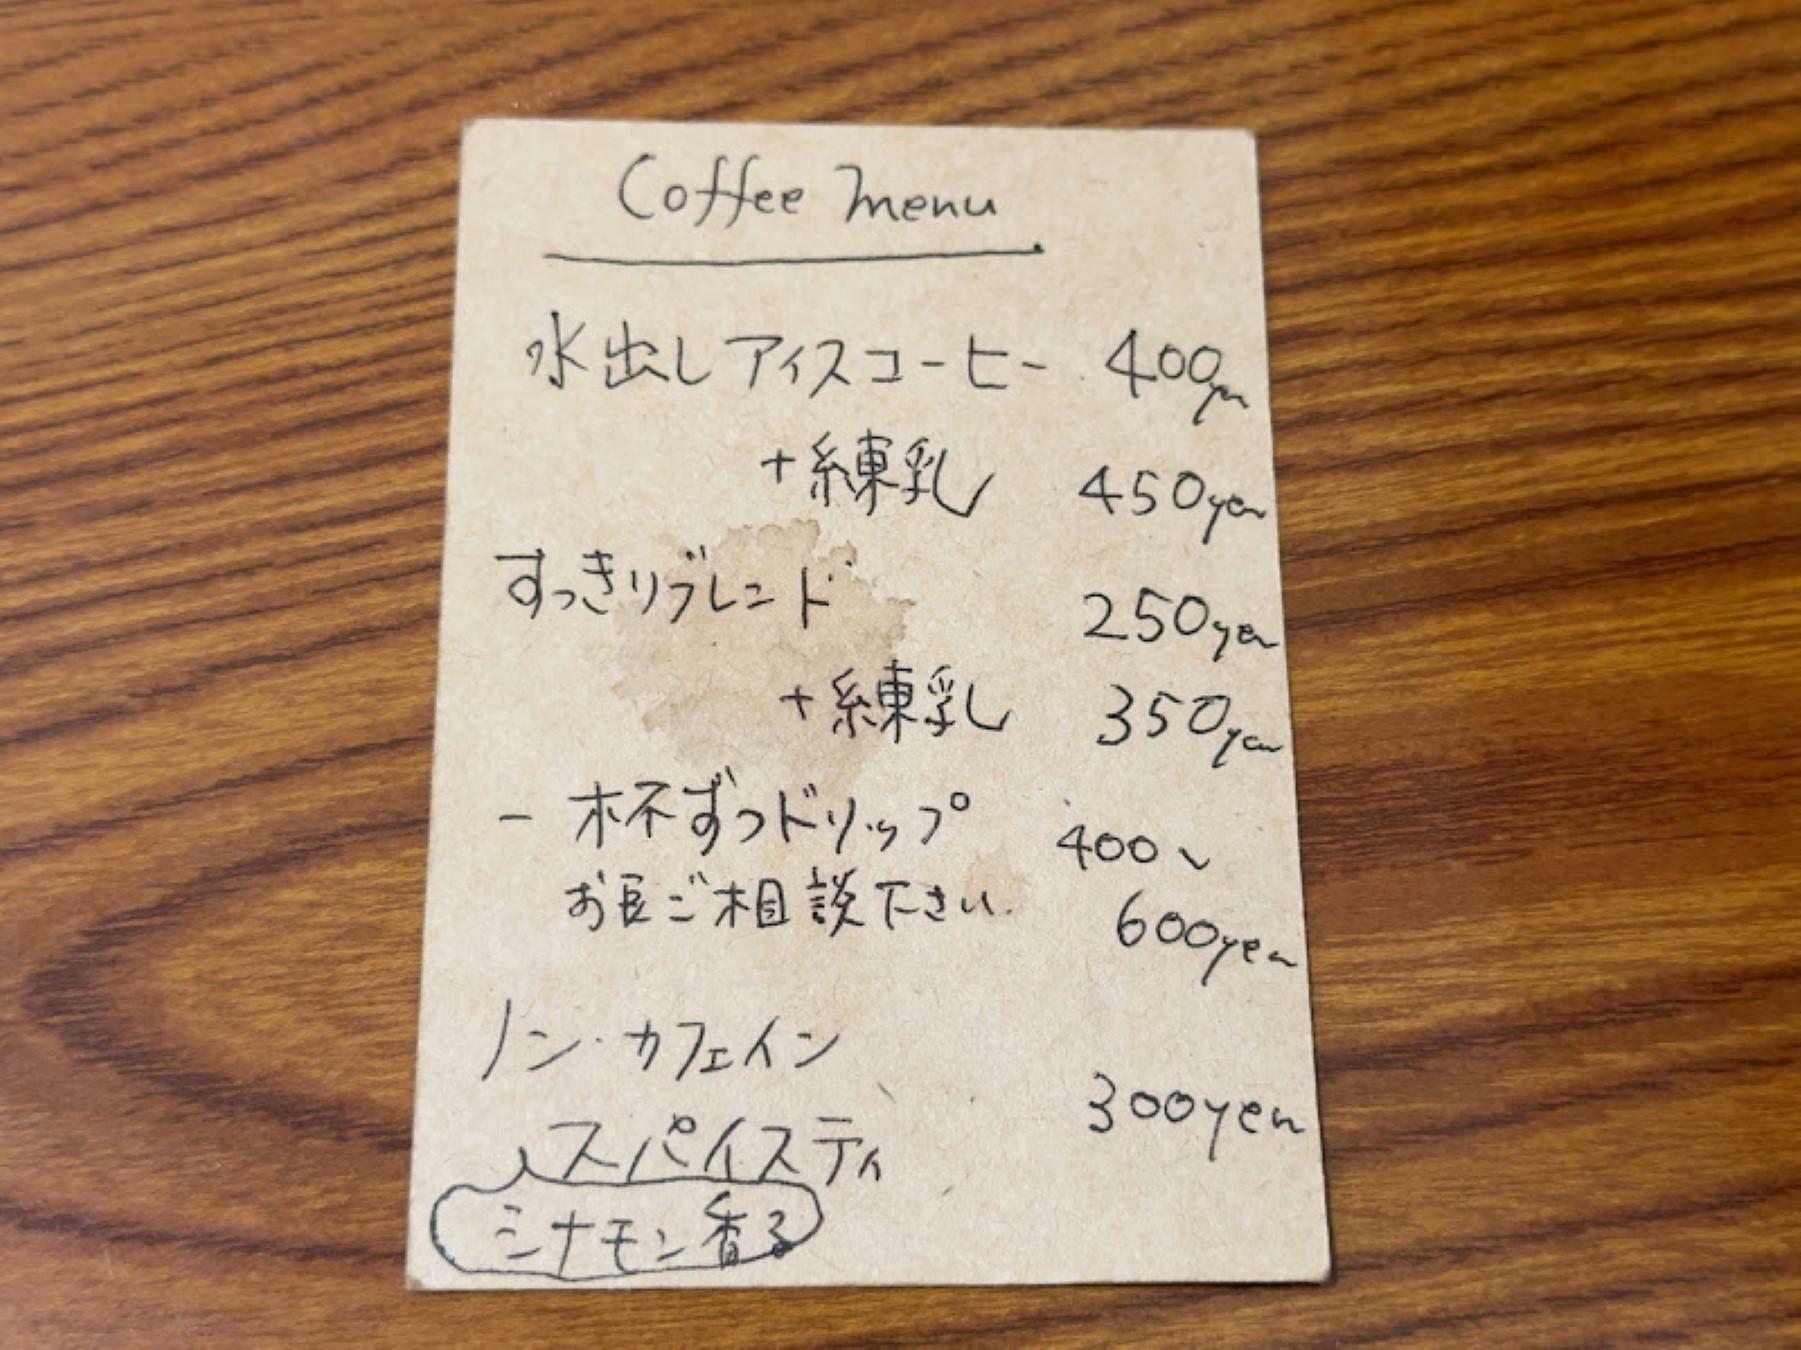 Coffee menu
水出しアイスコーヒー 400yen
+練乳 450yen
すっきりブレンド 250yen
+練乳 350yen
一杯ずつドリップ 400〜
お豆ご相談下さい. 600yen
ノン・カフェイン
スパイスティ 300yen
シナモン香る